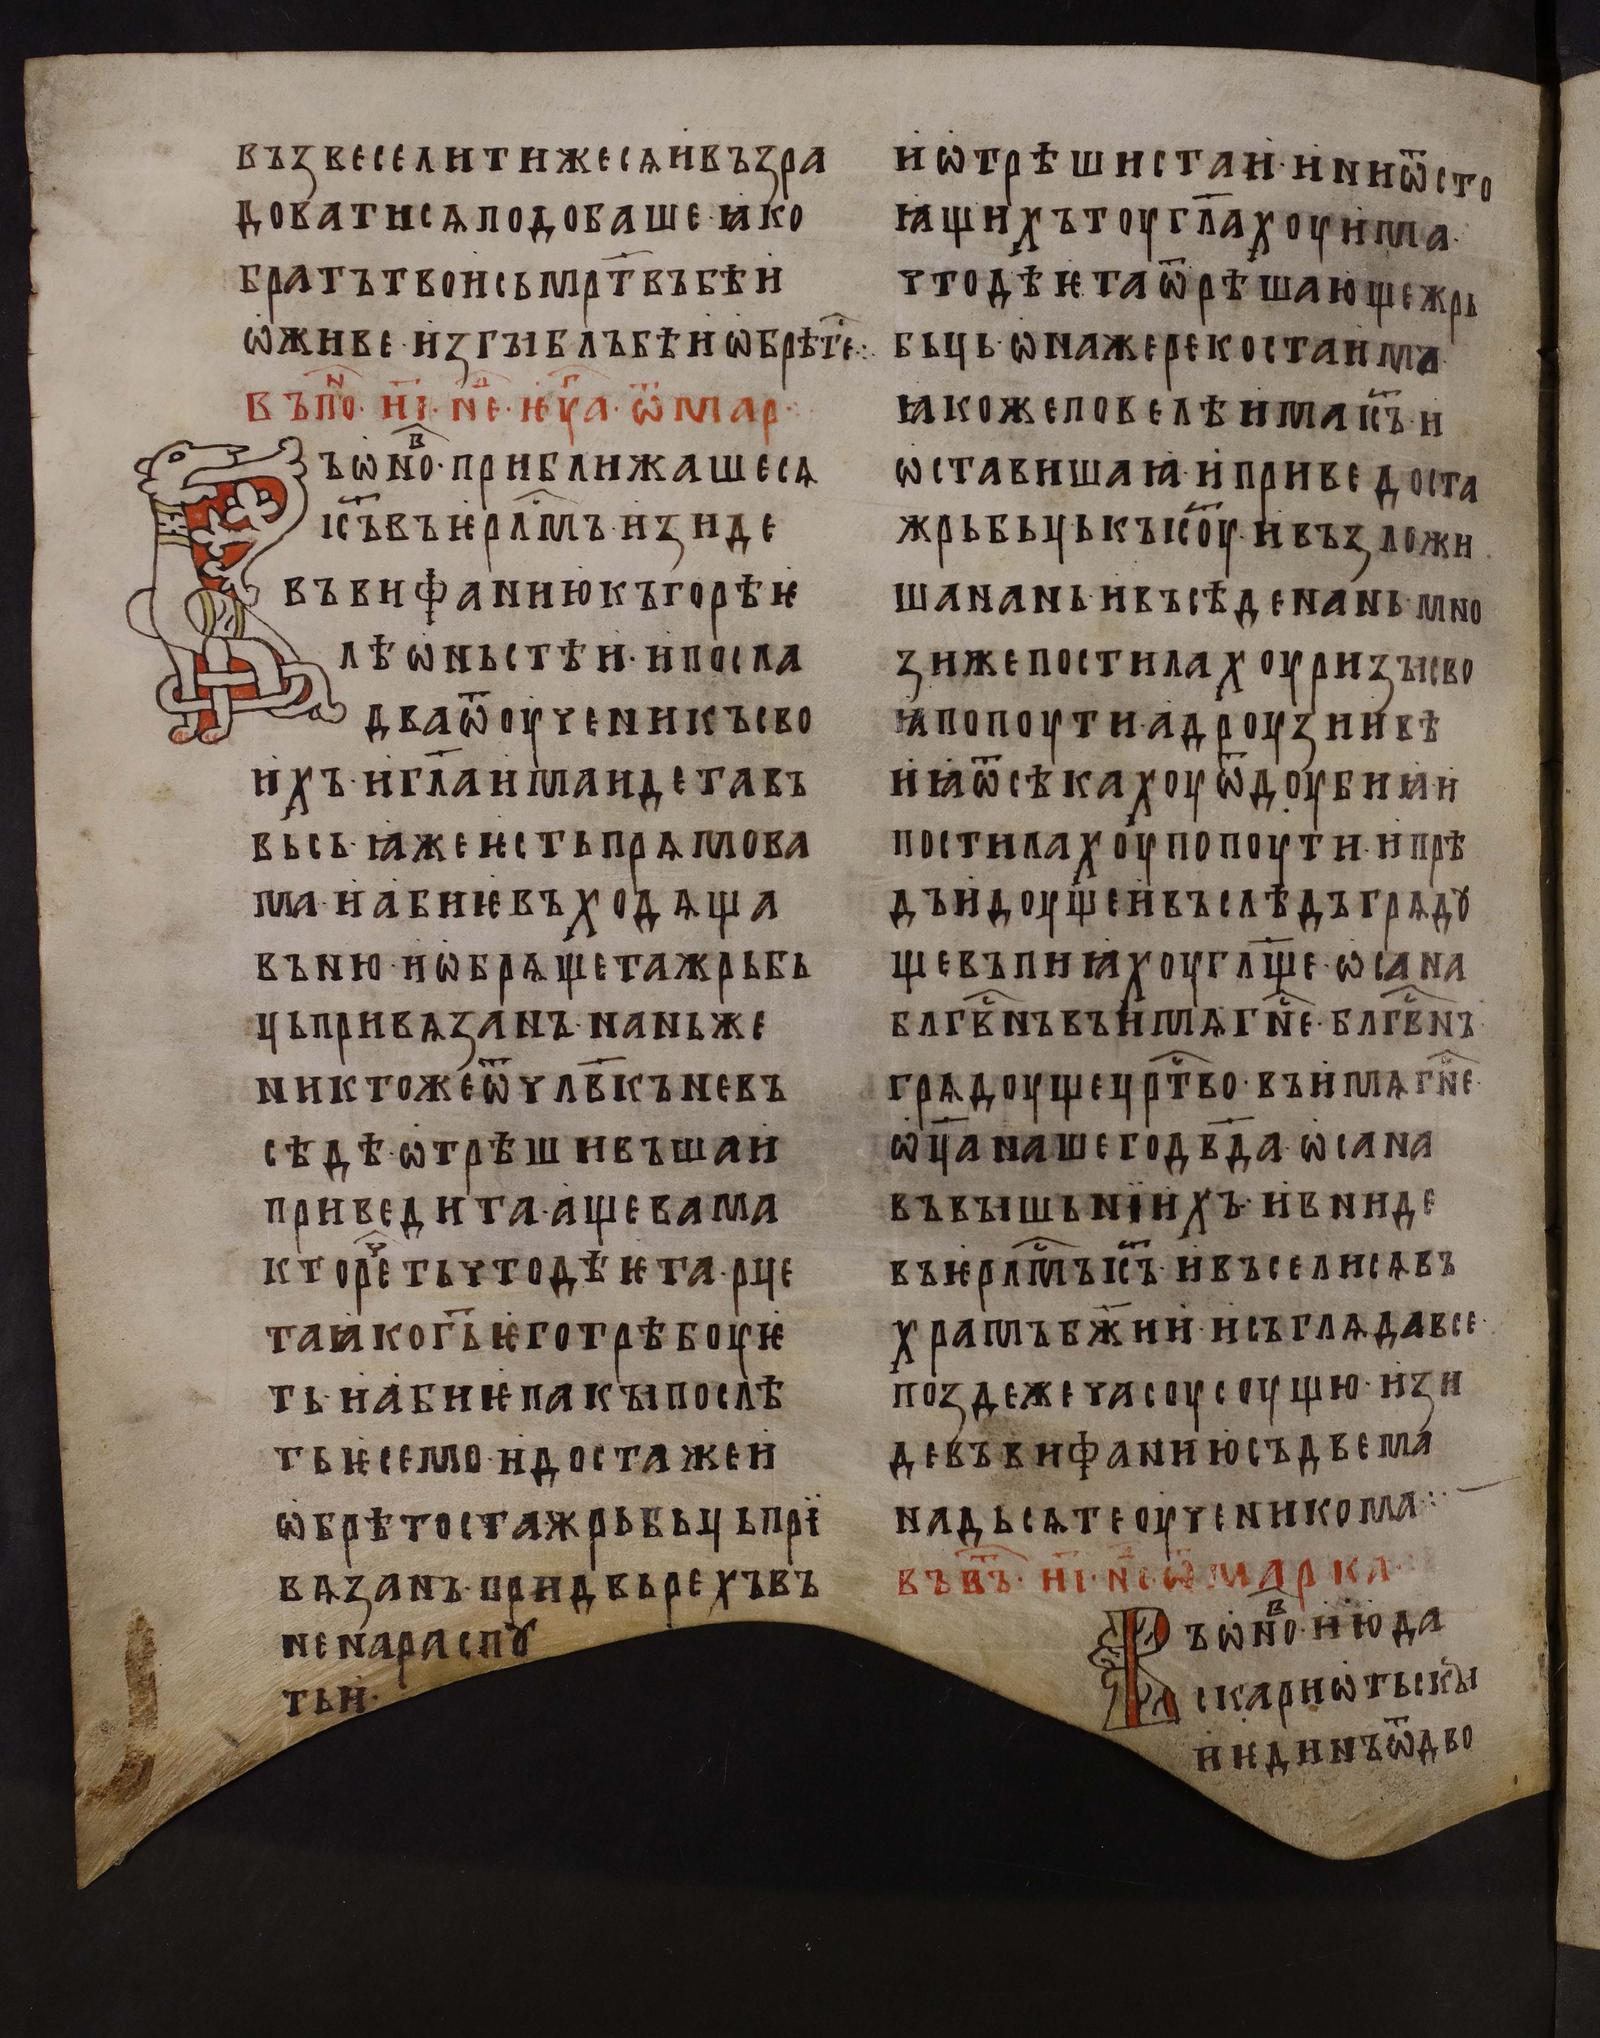 въꙁвеселитижесѧивъꙁра
доватисѧподобаше·ꙗко
братътвоисьмрт҃въбѣи
ѡживе·иꙁгꙑблъбѣиѡбрѣте҃·:·
въпоⁿ·н҃і·нⷣе·ѥⷢ҇ца·ѿмар·
ъѡⷡно·приближашесѧ
іс҃ъвъѥрл҃мъ·иꙁиде
въвифаниюкъгорѣѥ
лѣѡньстѣи·ипосла
дваѿоученикъсво
ихъ·игл҃аимаидетавъ
вьсь·ꙗжеѥстьпрѧмова
ма·иабиѥвъходѧща
въню·иѡбрѧщетажрьбь
цьпривѧꙁанъ·наньже
никтожеѿчлв҃къневъ
сѣдѣ·ѡтрѣшивъшаи
приведита·ащевама
кторечⷮетьчтодѣѥта·рце
таꙗког҃ьѥготрѣбоуѥ
ть·иабиѥпакꙑпослѣ
тьѥсемо·идостажеи
ѡбрѣтостажрьбьцьпрї
вѧꙁанъ·придвьрехъвъ
ненараспꙋ
тьи·
иѡтрѣшистаи·иниѿсто
ꙗщихътоугл҃ахоуима·
чтодѣѥтаѿрѣшающежрь
бьць·ѡнажерекостаима
ꙗкожеповелѣимаіс҃ъ·и
ѡставишаꙗ·иприведоста
жрьбьцькъіс҃оу·ивъꙁложи
шананьивъсѣденань·мно
ꙁижепостилахоуриꙁꙑсво
ꙗпопоути·адроуꙁиивѣ
иꙗѿсѣкахоуѿдоубиꙗи
постилахоупопоути·ипрѣ
дъидоущеивъслѣдъгрѧдꙋ
щевъпиꙗхоугл҃ще·ѡсана
блгвⷭ҇нъвъимѧгнⷭ҇е·блгвⷭ҇нъ
грѧдоущецрⷭ҇тво·въимѧгнⷭ҇е·
ѡц҃анашегодв҃да·ѡсана
въвꙑшьнїихъ·ивниде
въѥрлⷭ҇мъіс҃ъ·ивъселисѧвъ
храмъбж҃ии·исъглѧдавсе·
поꙁдежечасоусоущю·иꙁи
девъвифаниюсъдвема
надьсѧтеоученикома·:·
въвт҃ъ·н҃і·н҃е·ѿмарка·
ъѡⷡно·июда
скариѡтьскꙑ
иѥдинъѿдво